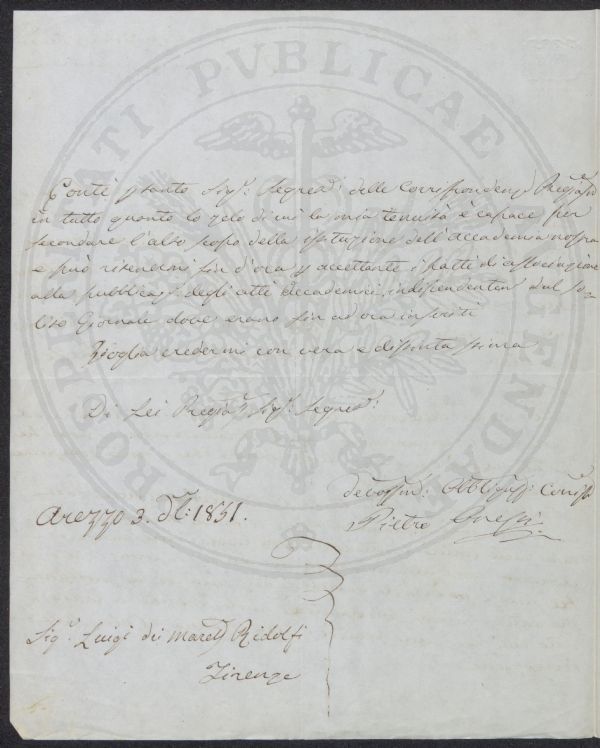 PROSPERITATI PVBLICAE AVGENDAE
Conti pertanto Sigr. Segreto. delle Corrispondenze Pregiatmo
in tutto quanto lo zelo di cui la mia tenuità è capace per
secondare l'alto scopo della istituzione dell'Accademia nostra
e può ritenermi fin d'ora p accettante i patti di associazione
alla pubblicaze. degli atti Accademici, indipendenten dal So-
lito Giornale dove erano fin ad ora inseriti
Voglia credermi con vera e distinta stima
Di Lei Pregiao. Sigr. Segreto.
Arezzo 3. 1851.
devotissmo: Obblgmo:
Pietro
Sigr. Luigi dei Marchi Ridolfi
Firenze